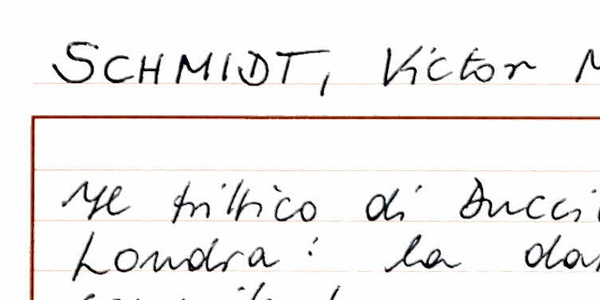 SCHMIDT, Victor M
Il trittico di Ducci
Londra: la da